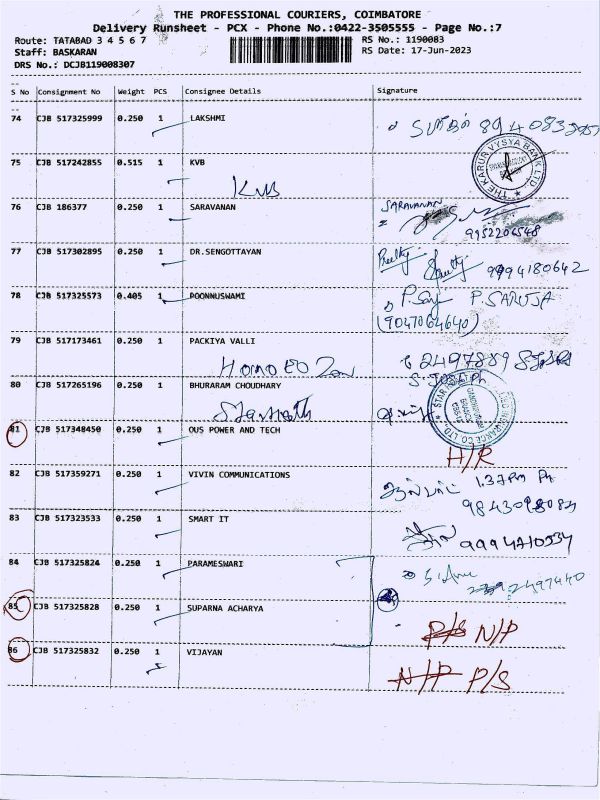 THE PROFESSIONAL COURIERS, COIMBATORE
Delivery Runsheet - PCX - Phone No.:0422-3505555 - Page No.:7
Route: TATABAD 3 4 5 6 7 RS No.: 1190083
Staff: BASKARAN RS Date: 17-Jun-2023
DRS No.: DCJB119008307
S No Consignment No Weight PCS Consignee Details Signature
74 CJB 517325999 0.250 1 LAKSHMI
75 CJB 517242855 0.515 1 KVB
KVB
THE KARUR VYSYA BANK LTD.
76 CJB 186377 0.250 1 SARAVANAN SARAVANAN
9952206548
77 CJB 517302895 0.250 1 DR.SENGOTTAYAN
9994180642
78 CJB 517325573 0.405 1 POONNUSWAMI P. SAROJA
(9047064640)
79 CJB 517173461 0.250 1 PACKIYA VALLI
2497889
S. JOSEPH
80 CJB 517265196 0.250 1 BHURARAM CHOUDHARY
81 CJB 517348450 0.250 1 OUS POWER AND TECH
H/R
82 CJB 517359271 0.250 1 VIVIN COMMUNICATIONS 1.37 PM
83 CJB 517323533 0.250 1 SMART IT
84 CJB 517325824 0.250 1 PARAMESWARI
2497440
85 CJB 517325828 0.250 1 SUPARNA ACHARYA
P/S N/P
86 CJB 517325832 0.250 1 VIJAYAN
N/P P/S